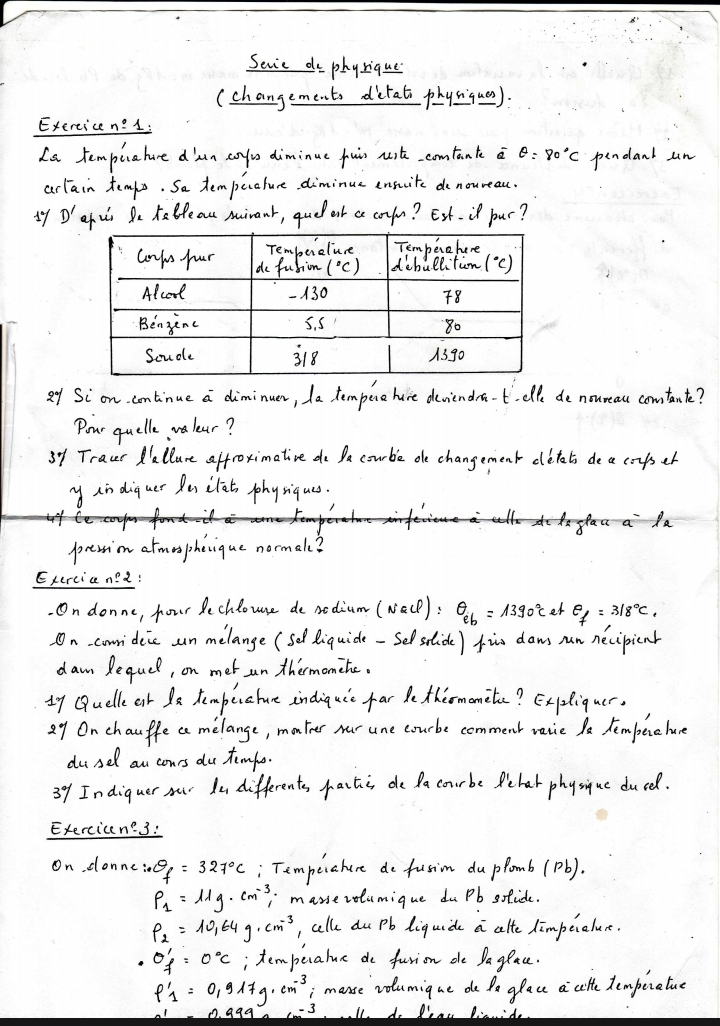 Serie de physique.
(changements d'états physiques).
Exercice n°1:
La température d'un corps diminue puis reste constante à θ = 80°C pendant un
certain temps. Sa température diminue ensuite de nouveau.
1°/ D'après le tableau suivant, quel est ce corps? Est-il pur?
Corps pur | Température de fusion (°C) | Température d'ébullition (°C)
Alcool | -130 | 78
Bénzène | 5,5 | 80
Soude | 318 | 1390
2°/ Si on continue à diminuer, la température deviendra-t-elle de nouveau constante?
Pour quelle valeur?
3°/ Tracer l'allure approximative de la courbe de changement d'états de ce corps et
y indiquer les états physiques.
4°/ Ce corps fond-il à une température inférieure à celle de la glace à la
pression atmosphérique normale?
Exercice n°2:
-On donne, pour le chlorure de sodium (NaCl): θeb = 1390°C et θf = 318°C.
On considère un mélange (Sel liquide - Sel solide) pris dans un récipient
dans lequel, on met un thérmomètre.
1°/ Quelle est la température indiquée par le thérmomètre? Expliquer.
2°/ On chauffe ce mélange, montrer sur une courbe comment varie la température
du sel au cours du temps.
3°/ Indiquer sur les differentes parties de la courbe l'état physique du sel.
Exercice n°3:
On donne: • θf = 327°C; Température de fusion du plomb (Pb).
ρ1 = 11 g.cm⁻³; masse volumique du Pb solide.
ρ2 = 10,64 g.cm⁻³, celle du Pb liquide à cette température.
• θ'f = 0°C; température de fusion de la glace.
ρ'1 = 0,917 g.cm⁻³; masse volumique de la glace à cette température
0,999 g. cm⁻³; celle de l'eau liquide.